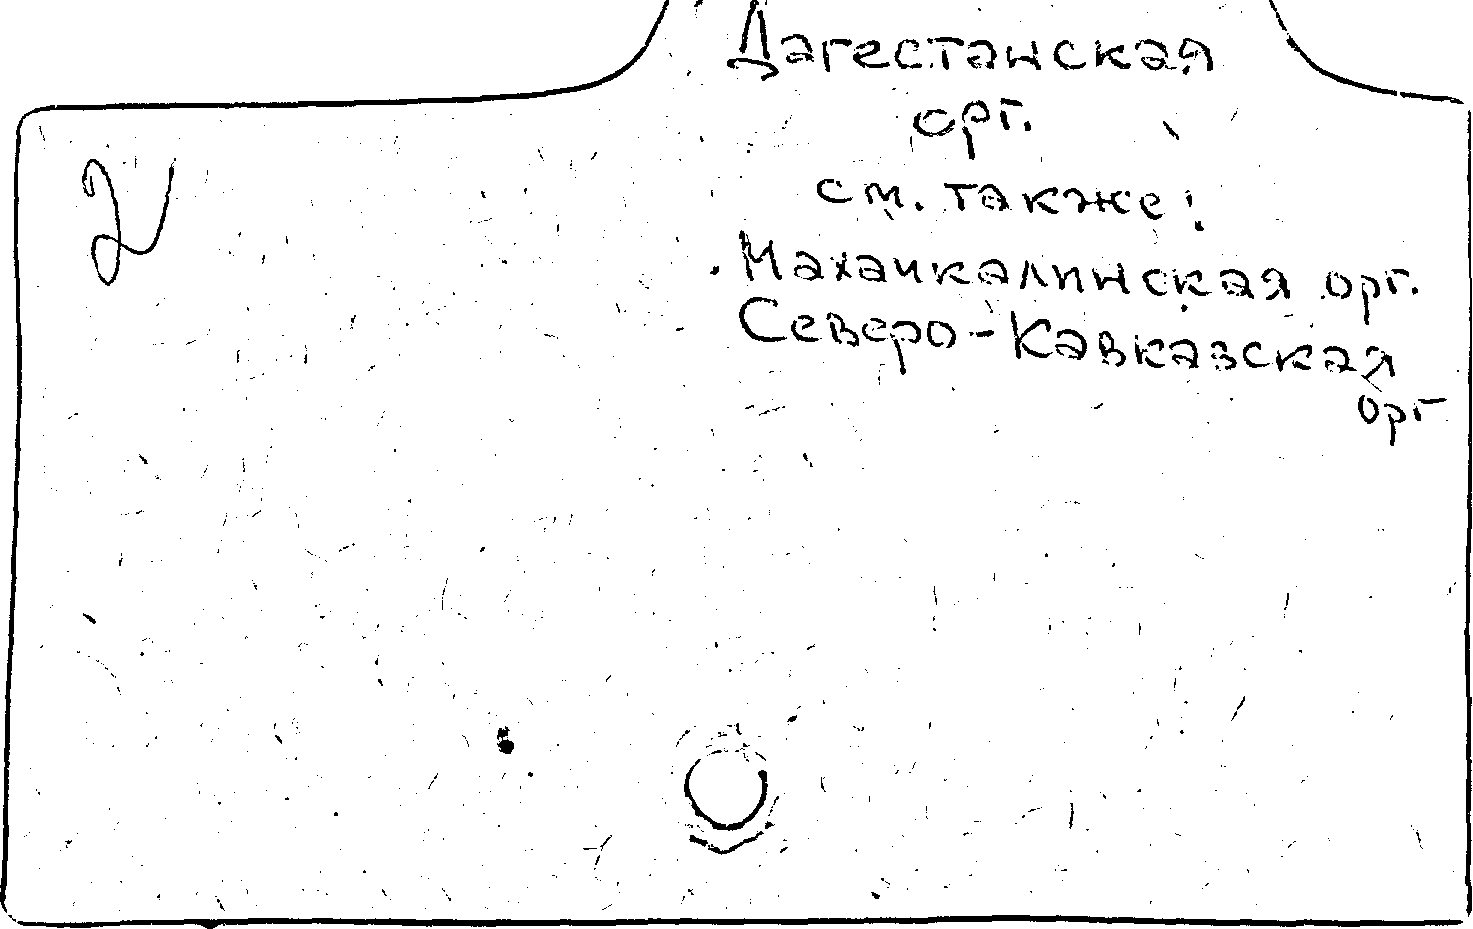 Дагестанская
орг.
см. также:
Махачкалинская орг.
Северо-Кавказская
орг